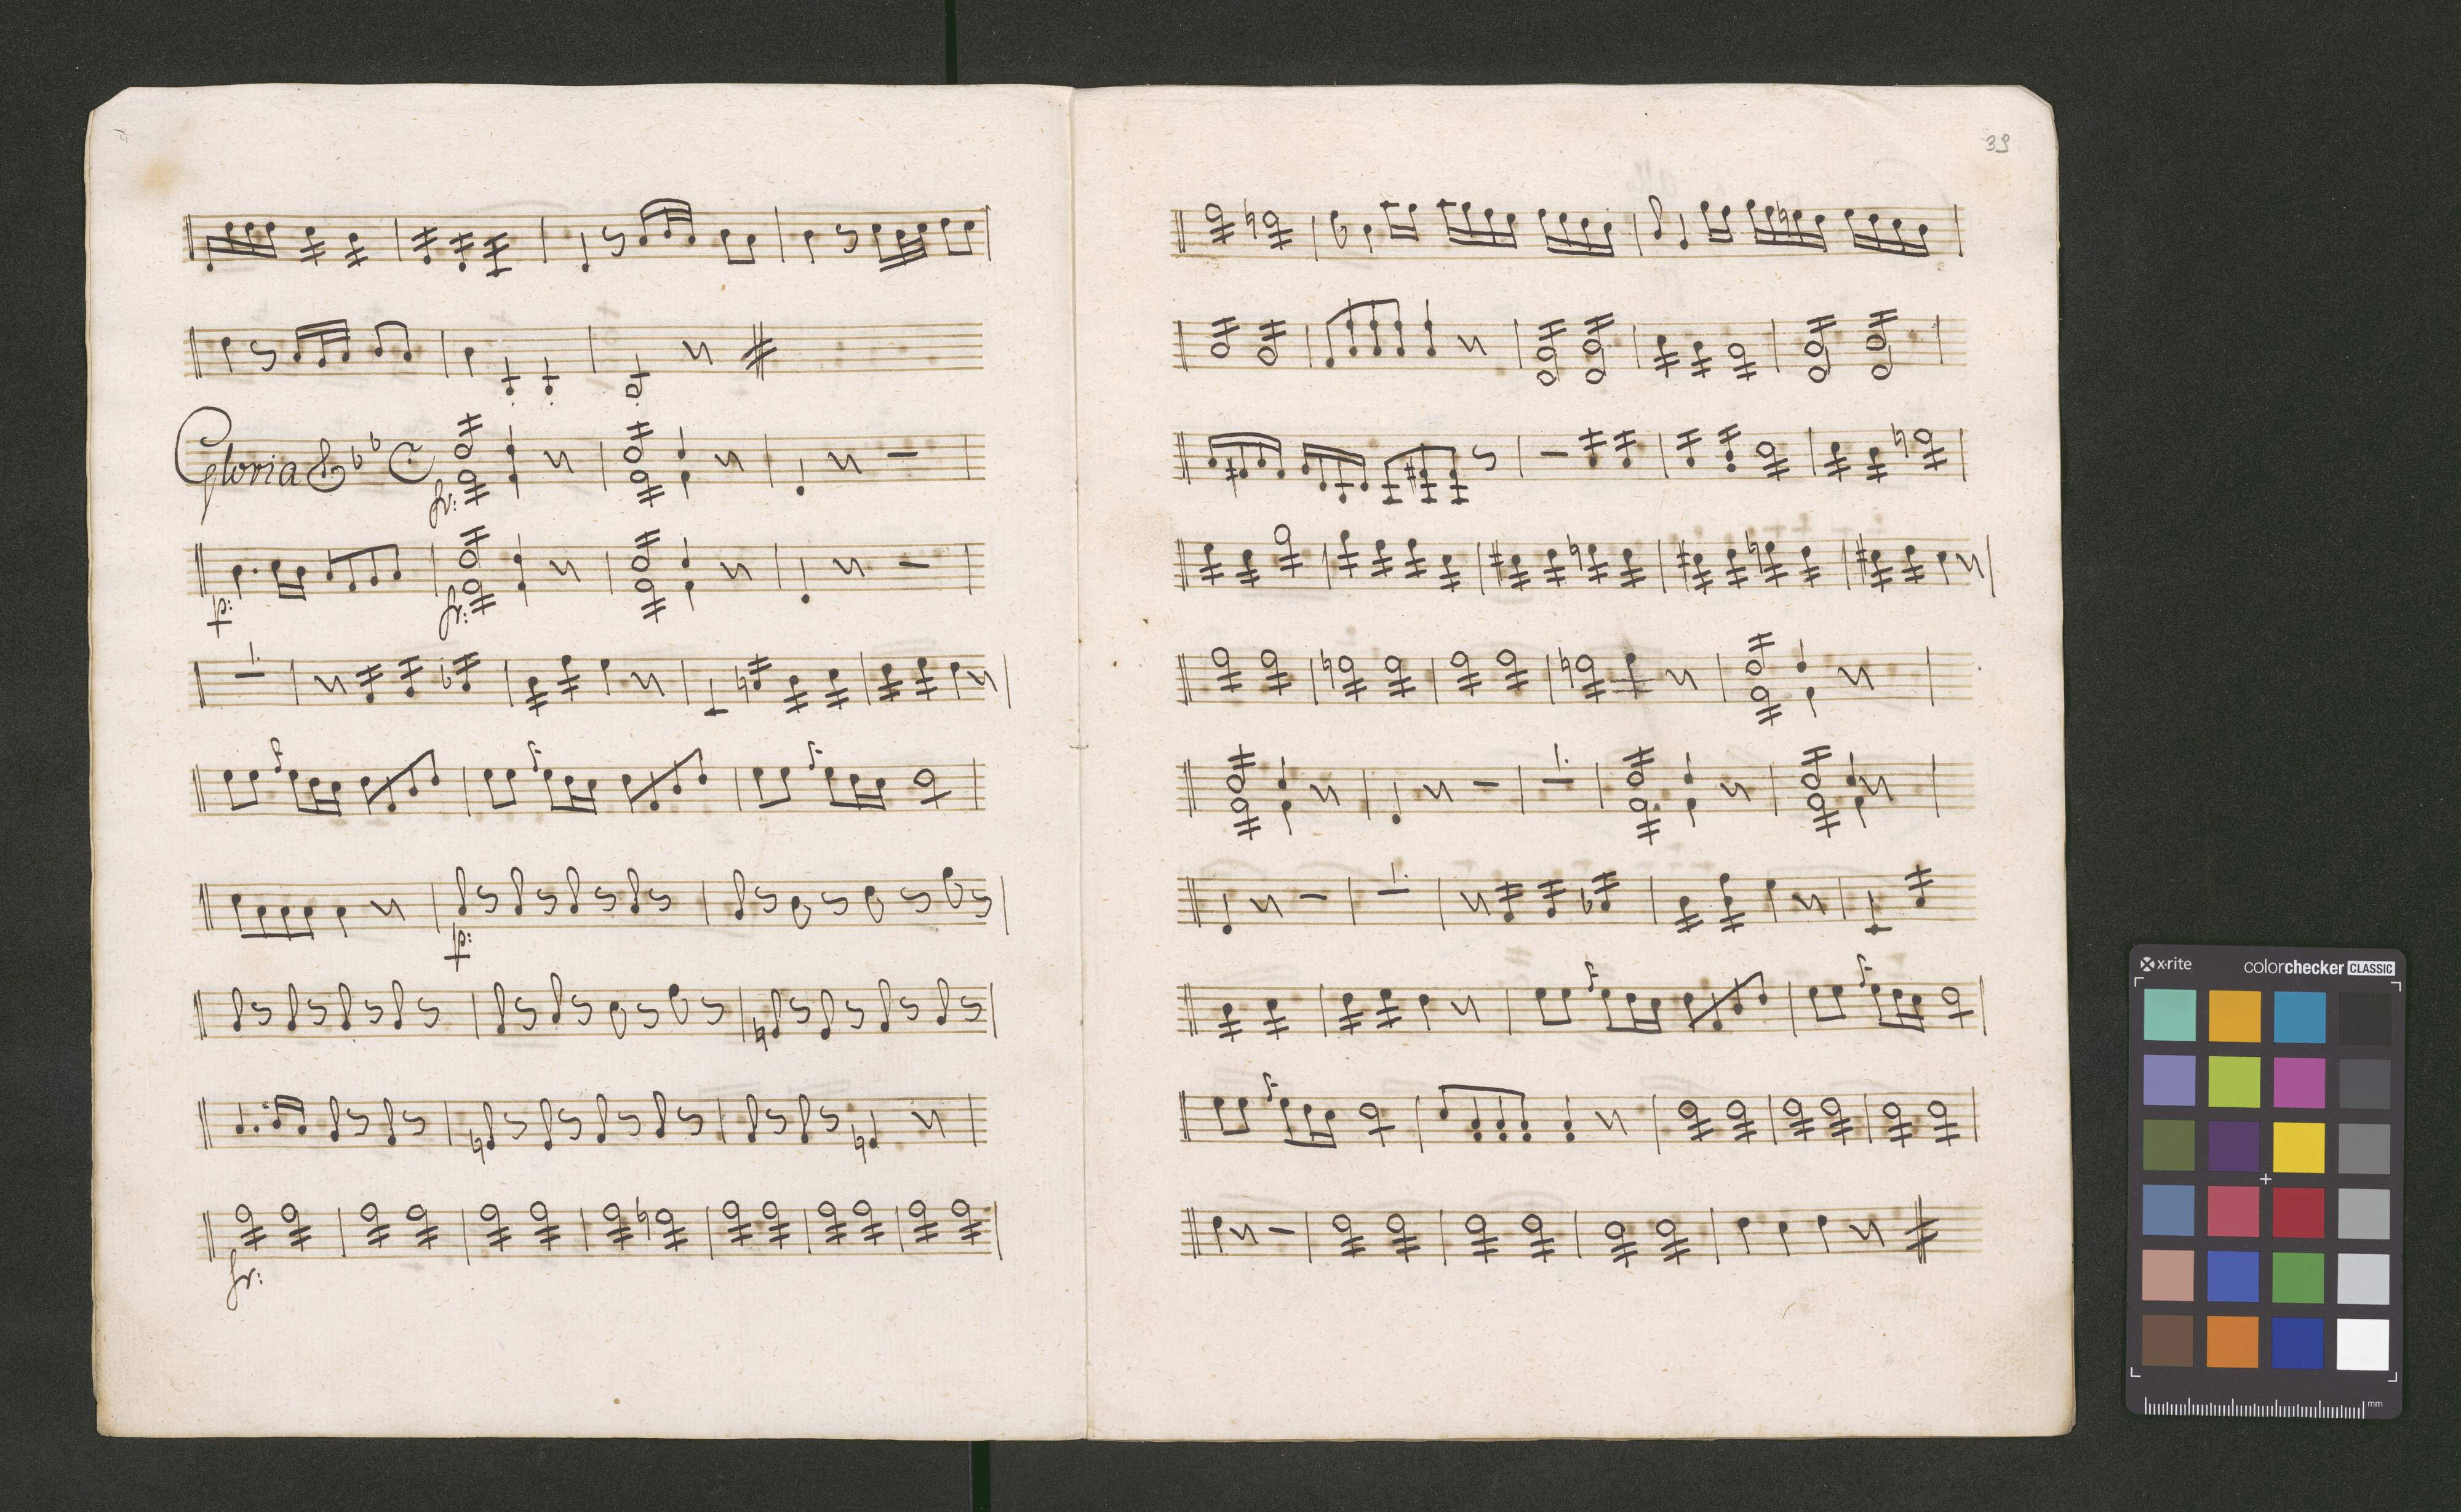 39
Gloria
fr:
p:
fr:
1.
p:
fr:
1.
1.
x-rite
colorchecker CLASSIC
mm